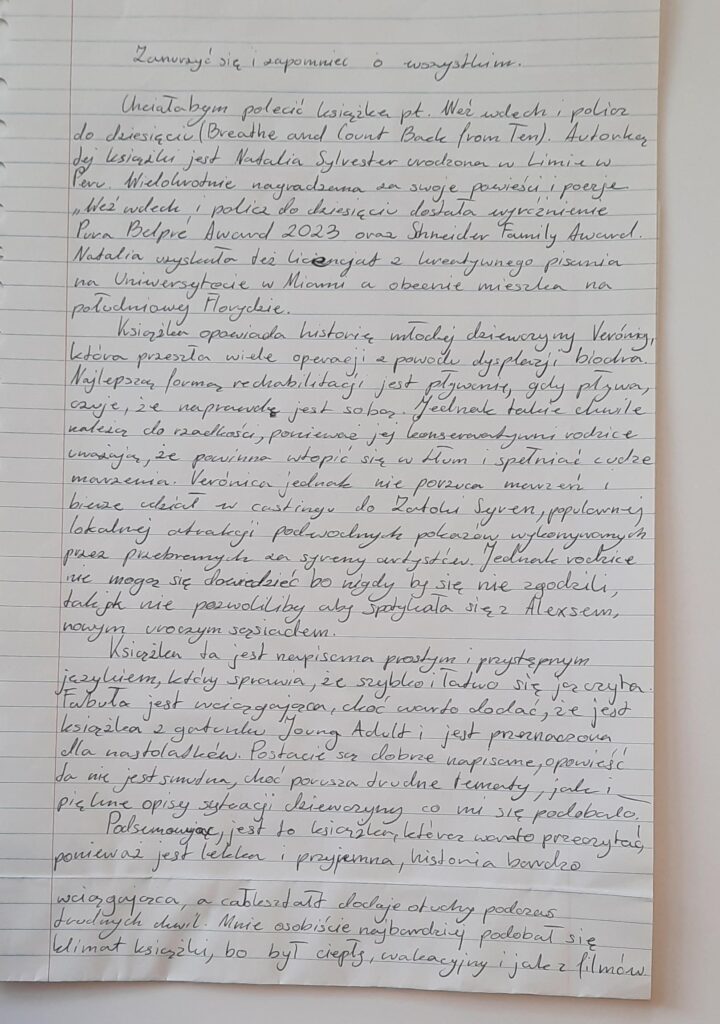 Zanurzyć się i zapomnieć o wszystkim.
Chciałabym polecić książkę pt. Weź wdech i policz
do dziesięciu (Breathe and Count Back from Ten). Autorką
tej książki jest Natalia Sylvester urodzona w Limie w
Peru. Wielokrotnie nagradzana za swoje powieści i poezje
„Weź wdech i policz do dziesięciu dostała wyróżnienie
Pura Belpré Award 2023 oraz Shneider Family Award.
Natalia uzyskała też licencjat z kreatywnego pisania
na Uniwersytecie w Miami a obecnie mieszka na
południowej Florydzie.
Książka opowiada historię młodej dziewczyny Verónicy,
która przeszła wiele operacji z powodu dysplazji biodra.
Najlepszą formą rechabilitacji jest pływanie, gdy pływa,
czuje, że naprawdę jest sobą. Jednak takie chwile
należą do rzadkości, ponieważ jej konserwatywni rodzice
uważają, że powinna wtopić się w tłum i spełniać cudze
marzenia. Verónica jednak nie porzuca marzeń i
bierze udział w castingu do Zatoki Syren, popularnej
lokalnej atrakcji podwodnych pokazów wykonywanych
przez przebranych za syreny artystów. Jednak rodzice
nie mogą się dowiedzieć bo nigdy by się nie zgodzili,
tak jak nie pozwoliliby aby spotykała się z Alexsem,
nowym uroczym sąsiadem.
Książka ta jest napisana prostym i przystępnym
językiem, który sprawia, że szybko i łatwo się ją czyta.
Fabuła jest wciągająca, choć warto dodać, że jest
książka z gatunku Young Adult i jest przeznaczona
dla nastolatków. Postacie są dobrze napisane, opowieść
ta nie jest smutna, choć porusza trudne tematy, jak i
piękne opisy sytuacji dziewczyny co mi się podobało.
Podsumowując, jest to książka, którą warto przeczytać,
ponieważ jest lekka i przyjemna, historia bardzo
wciągająca, a całokształt dodaje otuchy podczas
trudnych chwil. Mnie osobiście najbardziej podobał się
klimat książki, bo był ciepły, wakacyjny i jak z filmów